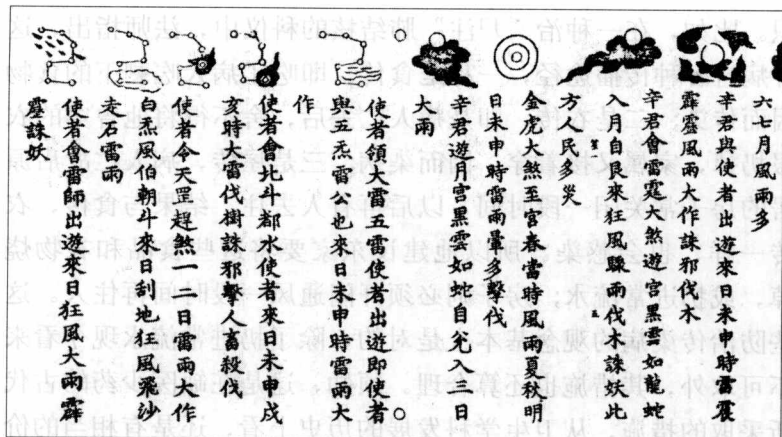 六七月風雨多
辛君與使者出遊來日未申時雷霆
霹靂風雨大作誅邪伐木
辛君會雷霆大煞遊宮黑雲如龍蛇
入月自艮來狂風驟雨伐神誅妖此
方人民多災
金虎大煞至其春當時風雨夏秋明
日未申時雷雨暈多擊伐
辛君遊月宮黑雲如蛇自九入來日
大雨
使者領大雷五雷使者出遊即使者
與五炁雷公也來日未申時雷雨大
作
使者會北斗都水使者來日未申戌
亥時大雷伐樹誅邪擊人畜殺伐
使者今天罡趕煞一二日雷雨大作
白炁風伯朝斗來日刮地狂風飛沙
走石雷雨
使者會雷師出遊來日狂風大雨霹
靂誅妖